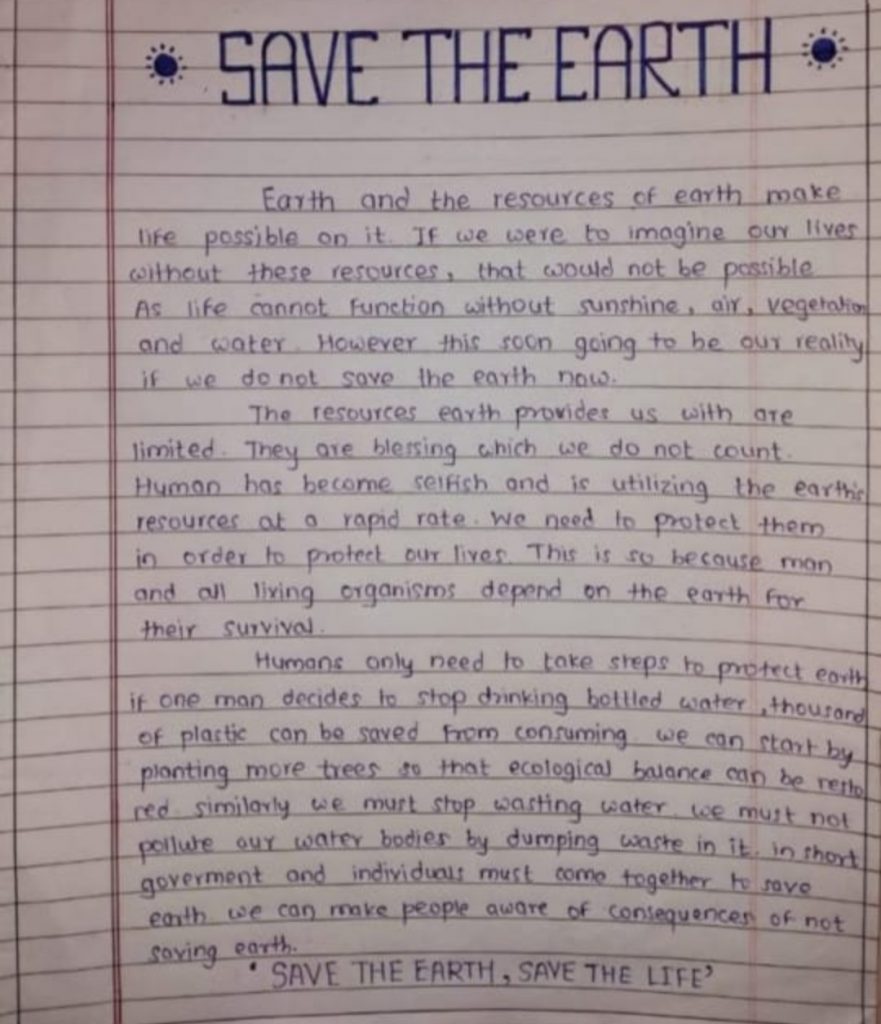 SAVE THE EARTH
Earth and the resources of earth make
life possible on it. If we were to imagine our lives
without these resources, that would not be possible
As life cannot function without sunshine, air, vegetation
and water. However this soon going to be our reality
if we do not save the earth now.
The resources earth provides us with are
limited. They are blessing which we do not count.
Human has become selfish and is utilizing the earth's
resources at a rapid rate. We need to protect them
in order to protect our lives. This is so because man
and all living organisms depend on the earth for
their survival.
Humans only need to take steps to protect earth
if one man decides to stop drinking bottled water, thousand
of plastic can be saved from consuming. we can start by
planting more trees so that ecological balance can be resto
red. similarly we must stop wasting water. we must not
pollute our water bodies by dumping waste in it. in short
goverment and individuals must come together to save
earth we can make people aware of consequences of not
saving earth.
'SAVE THE EARTH, SAVE THE LIFE'